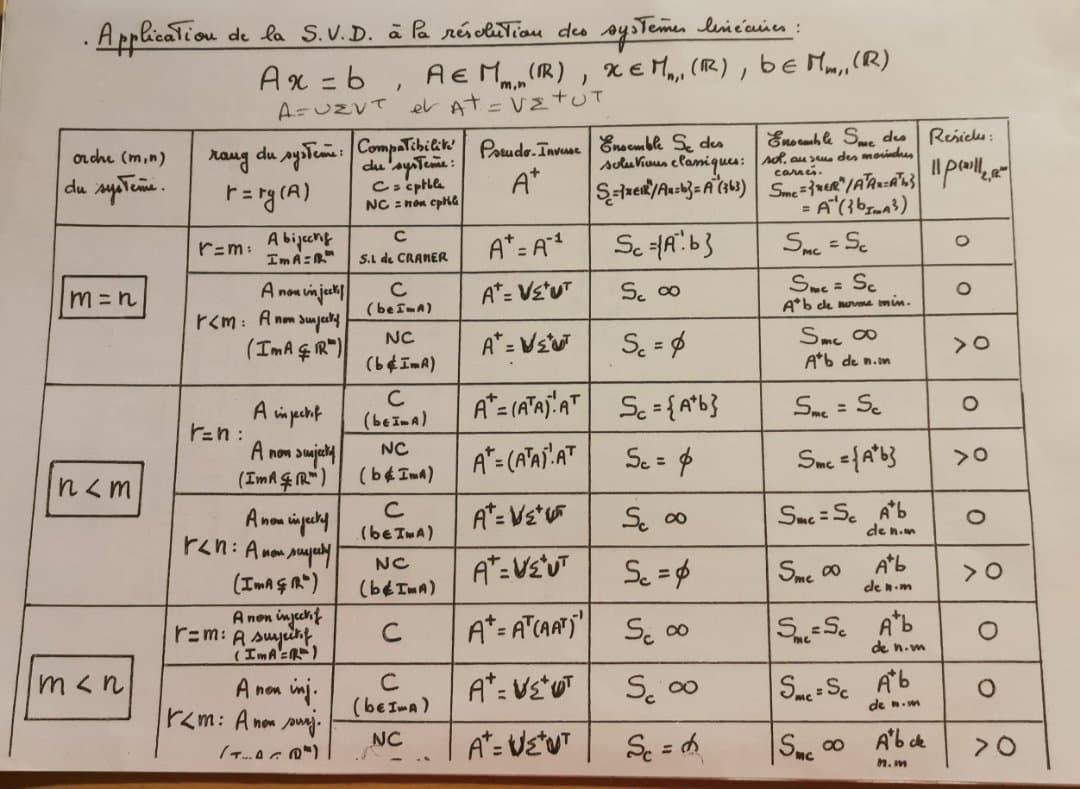 . Application de la S.V.D. à la résolution des systèmes linéaires :
Ax = b , A ∈ M_{m,n}(ℝ) , x ∈ M_{n,1}(ℝ) , b ∈ M_{m,1}(ℝ)
A = UΣV^T et A⁺ = VΣ⁺U^T
ordre (m,n) du système.
rang du système : r = rg(A)
Compatibilité du système : C = cptble NC = non cptble
Pseudo-Inverse A⁺
Ensemble S_c des solutions classiques : S_c = {x∈ℝⁿ/Ax=b} = A⁻¹({b})
Ensemble S_mc des sol. au sens des moindres carrés. S_mc = {x∈ℝⁿ/A^TAx=A^Tb} = A⁻¹({b_ImA})
Résidu : ||ρ(x)||_{2,ℝ^m}
m = n
r=m : A bijectif ImA=ℝ^m
C S.L de CRAMER
A⁺ = A⁻¹
S_c = {A⁻¹.b}
S_mc = S_c
0
r<m : A non injectif A non surjectif (ImA ⊊ ℝ^m)
C (b∈ImA)
A⁺ = VΣ⁺U^T
S_c ∞
S_mc = S_c A⁺b de norme min.
0
NC (b∉ImA)
A⁺ = VΣ⁺U^T
S_c = ϕ
S_mc ∞ A⁺b de n.m
>0
n < m
r=n : A injectif A non surjectif (ImA ⊊ ℝ^m)
C (b∈ImA)
A⁺ = (A^TA)⁻¹.A^T
S_c = {A⁺b}
S_mc = S_c
0
NC (b∉ImA)
A⁺ = (A^TA)⁻¹.A^T
S_c = ϕ
S_mc = {A⁺b}
>0
r<n : A non injectif A non surjectif (ImA ⊊ ℝ^m)
C (b∈ImA)
A⁺ = VΣ⁺U^T
S_c ∞
S_mc = S_c A⁺b de n.m
0
NC (b∉ImA)
A⁺ = VΣ⁺U^T
S_c = ϕ
S_mc ∞ A⁺b de n.m
>0
m < n
r=m : A non injectif A surjectif (ImA=ℝ^m)
C
A⁺ = A^T(AA^T)⁻¹
S_c ∞
S_mc = S_c A⁺b de n.m
0
r<m : A non inj. A non surj.
C (b∈ImA)
A⁺ = VΣ⁺U^T
S_c ∞
S_mc = S_c A⁺b de n.m
0
NC
A⁺ = VΣ⁺U^T
S_c = ϕ
S_mc ∞ A⁺b de n.m
>0